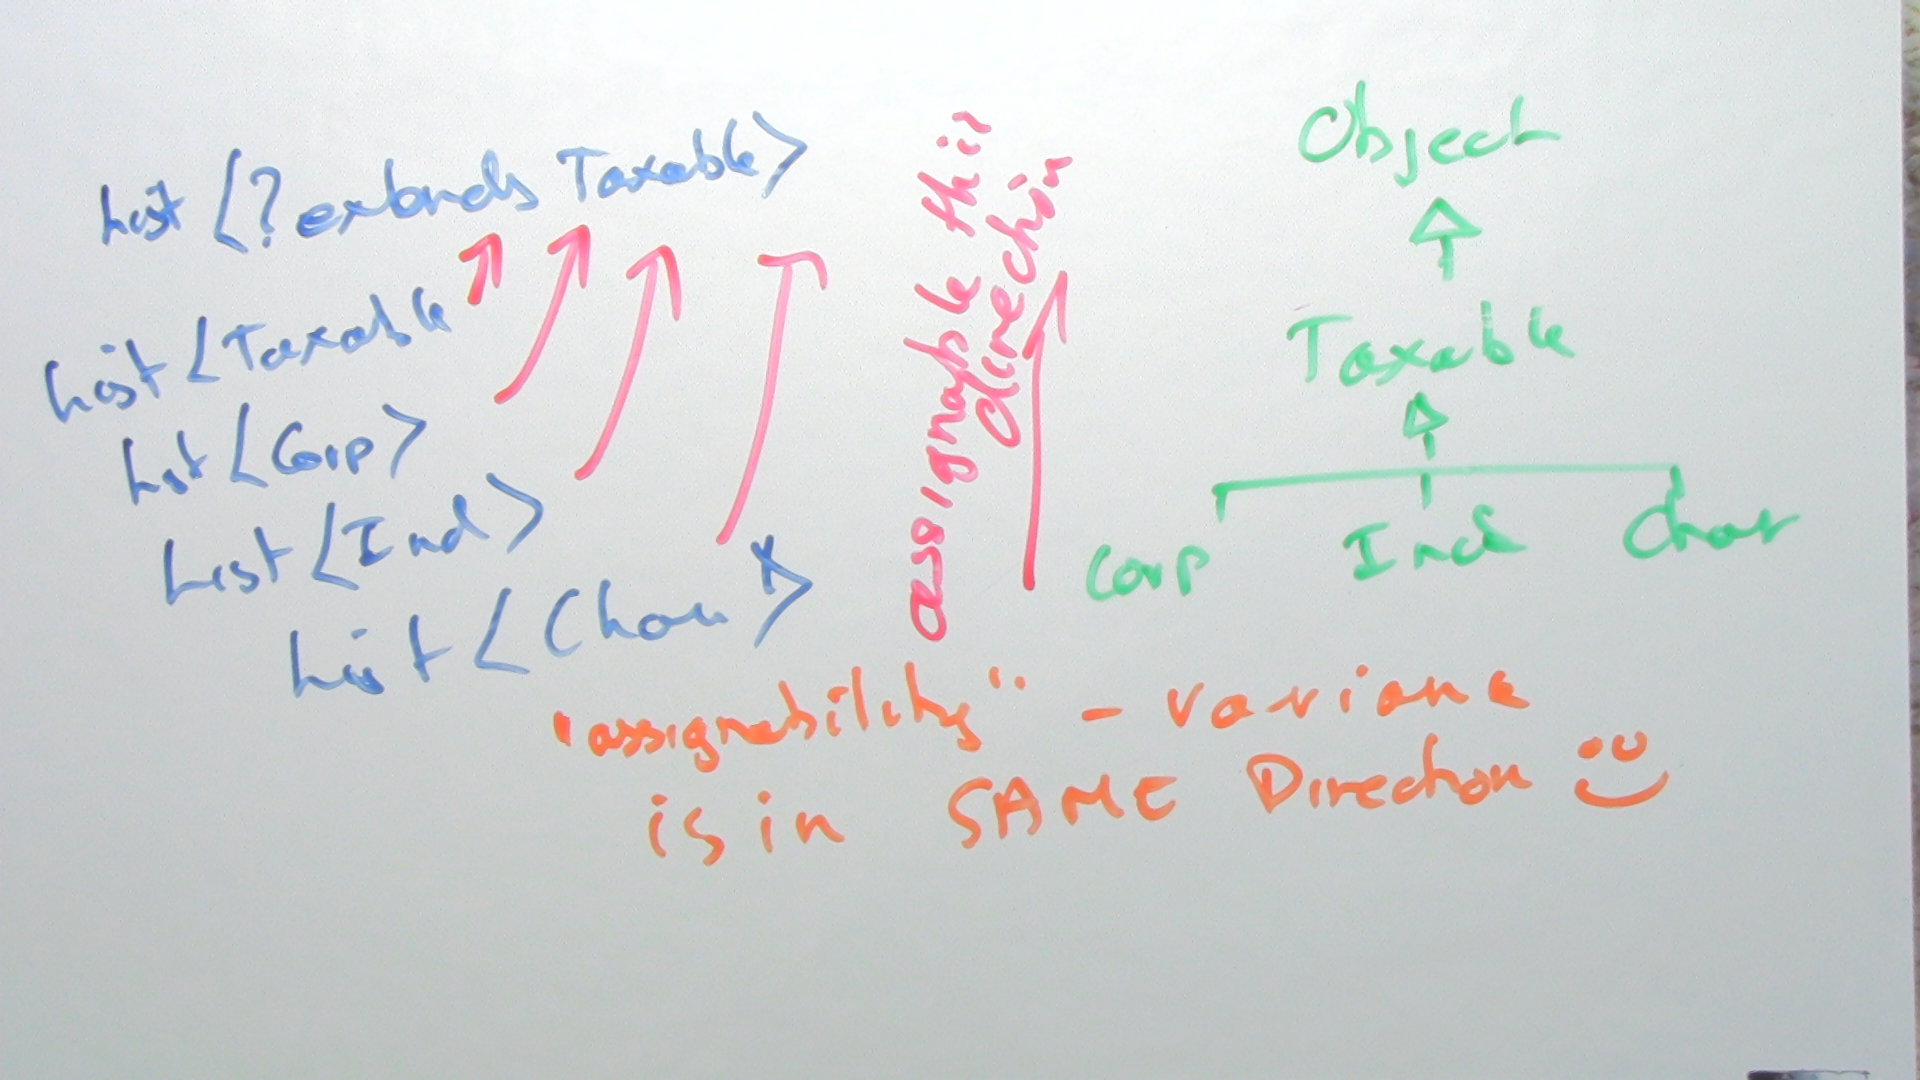 List <? extends Taxable>
List <Taxable
List <Corp>
List <Ind>
List <Char>
assignable this
direction
Object
Taxable
Corp Ind Char
"assignability" - variance
is in SAME Direction